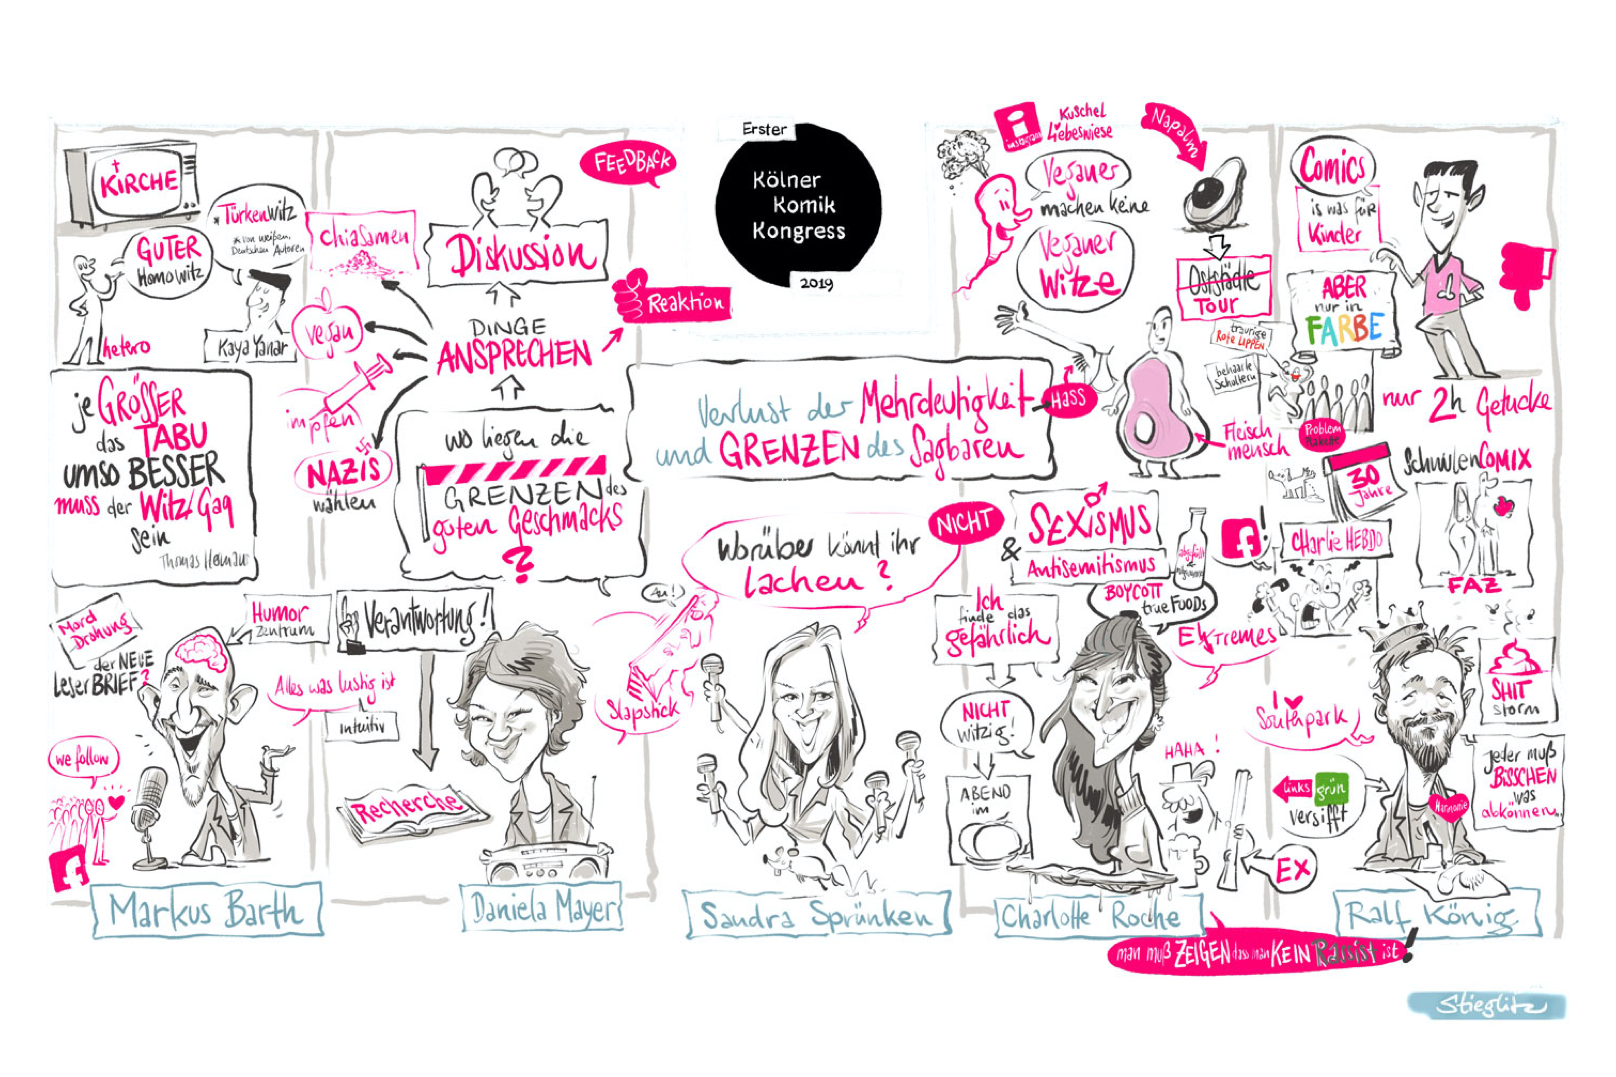 Erster
Kölner
Komik
Kongress
2019
Verlust der Mehrdeutigkeit
und GRENZEN des Sagbaren
KIRCHE
GUTER
Homowitz
hetero
* Türkenwitz
* von weißen,
Deutschen Autoren
Kaya Yanar
je GRÖSSER
das TABU
umso BESSER
muss der Witz/Gag
sein
Chiasamen
vegan
impfen
NAZIS
wählen
Diskussion
DINGE
ANSPRECHEN
wo liegen die
GRENZEN des
guten Geschmacks
?
FEEDBACK
Reaktion
Mord
Drohung
der NEUE
LeserBRIEF?
Humor
Zentrum
we follow
f
Markus Barth
Verantwortung!
Alles was lustig ist
intuitiv
Recherche
Daniela Mayer
Au!
Slapstick
Worüber könnt ihr
NICHT
lachen?
Sandra Sprünken
instagram
Kuschel
Liebeswiese
Veganer
machen keine
Veganer
Witze
HASS
Fleisch
mensch
Napalm
Oststädte
TOUR
traurige
Rote LIPPEN
behaarte
Schultern
Problem
SEXISMUS
&
Antisemitismus
BOYCOTT
true FOODs
Ich
finde das
gefährlich
NICHT
witzig!
ABEND
im
EXtremes
HAHA!
EX
Charlotte Roche
man muß ZEIGEN dass man KEIN Rassist ist!
Comics
is was für
Kinder
ABER
nur in
FARBE
nur 2h Getucke
30
Jahre
SchwulenCOMIX
FAZ
f!
CHARLIE HEBDO
SHIT
storm
I ♥
Southpark
links grün
versifft
Harmonie
jeder muß
BISSCHEN
was
abkönnen...
Ralf König
Stieglitz